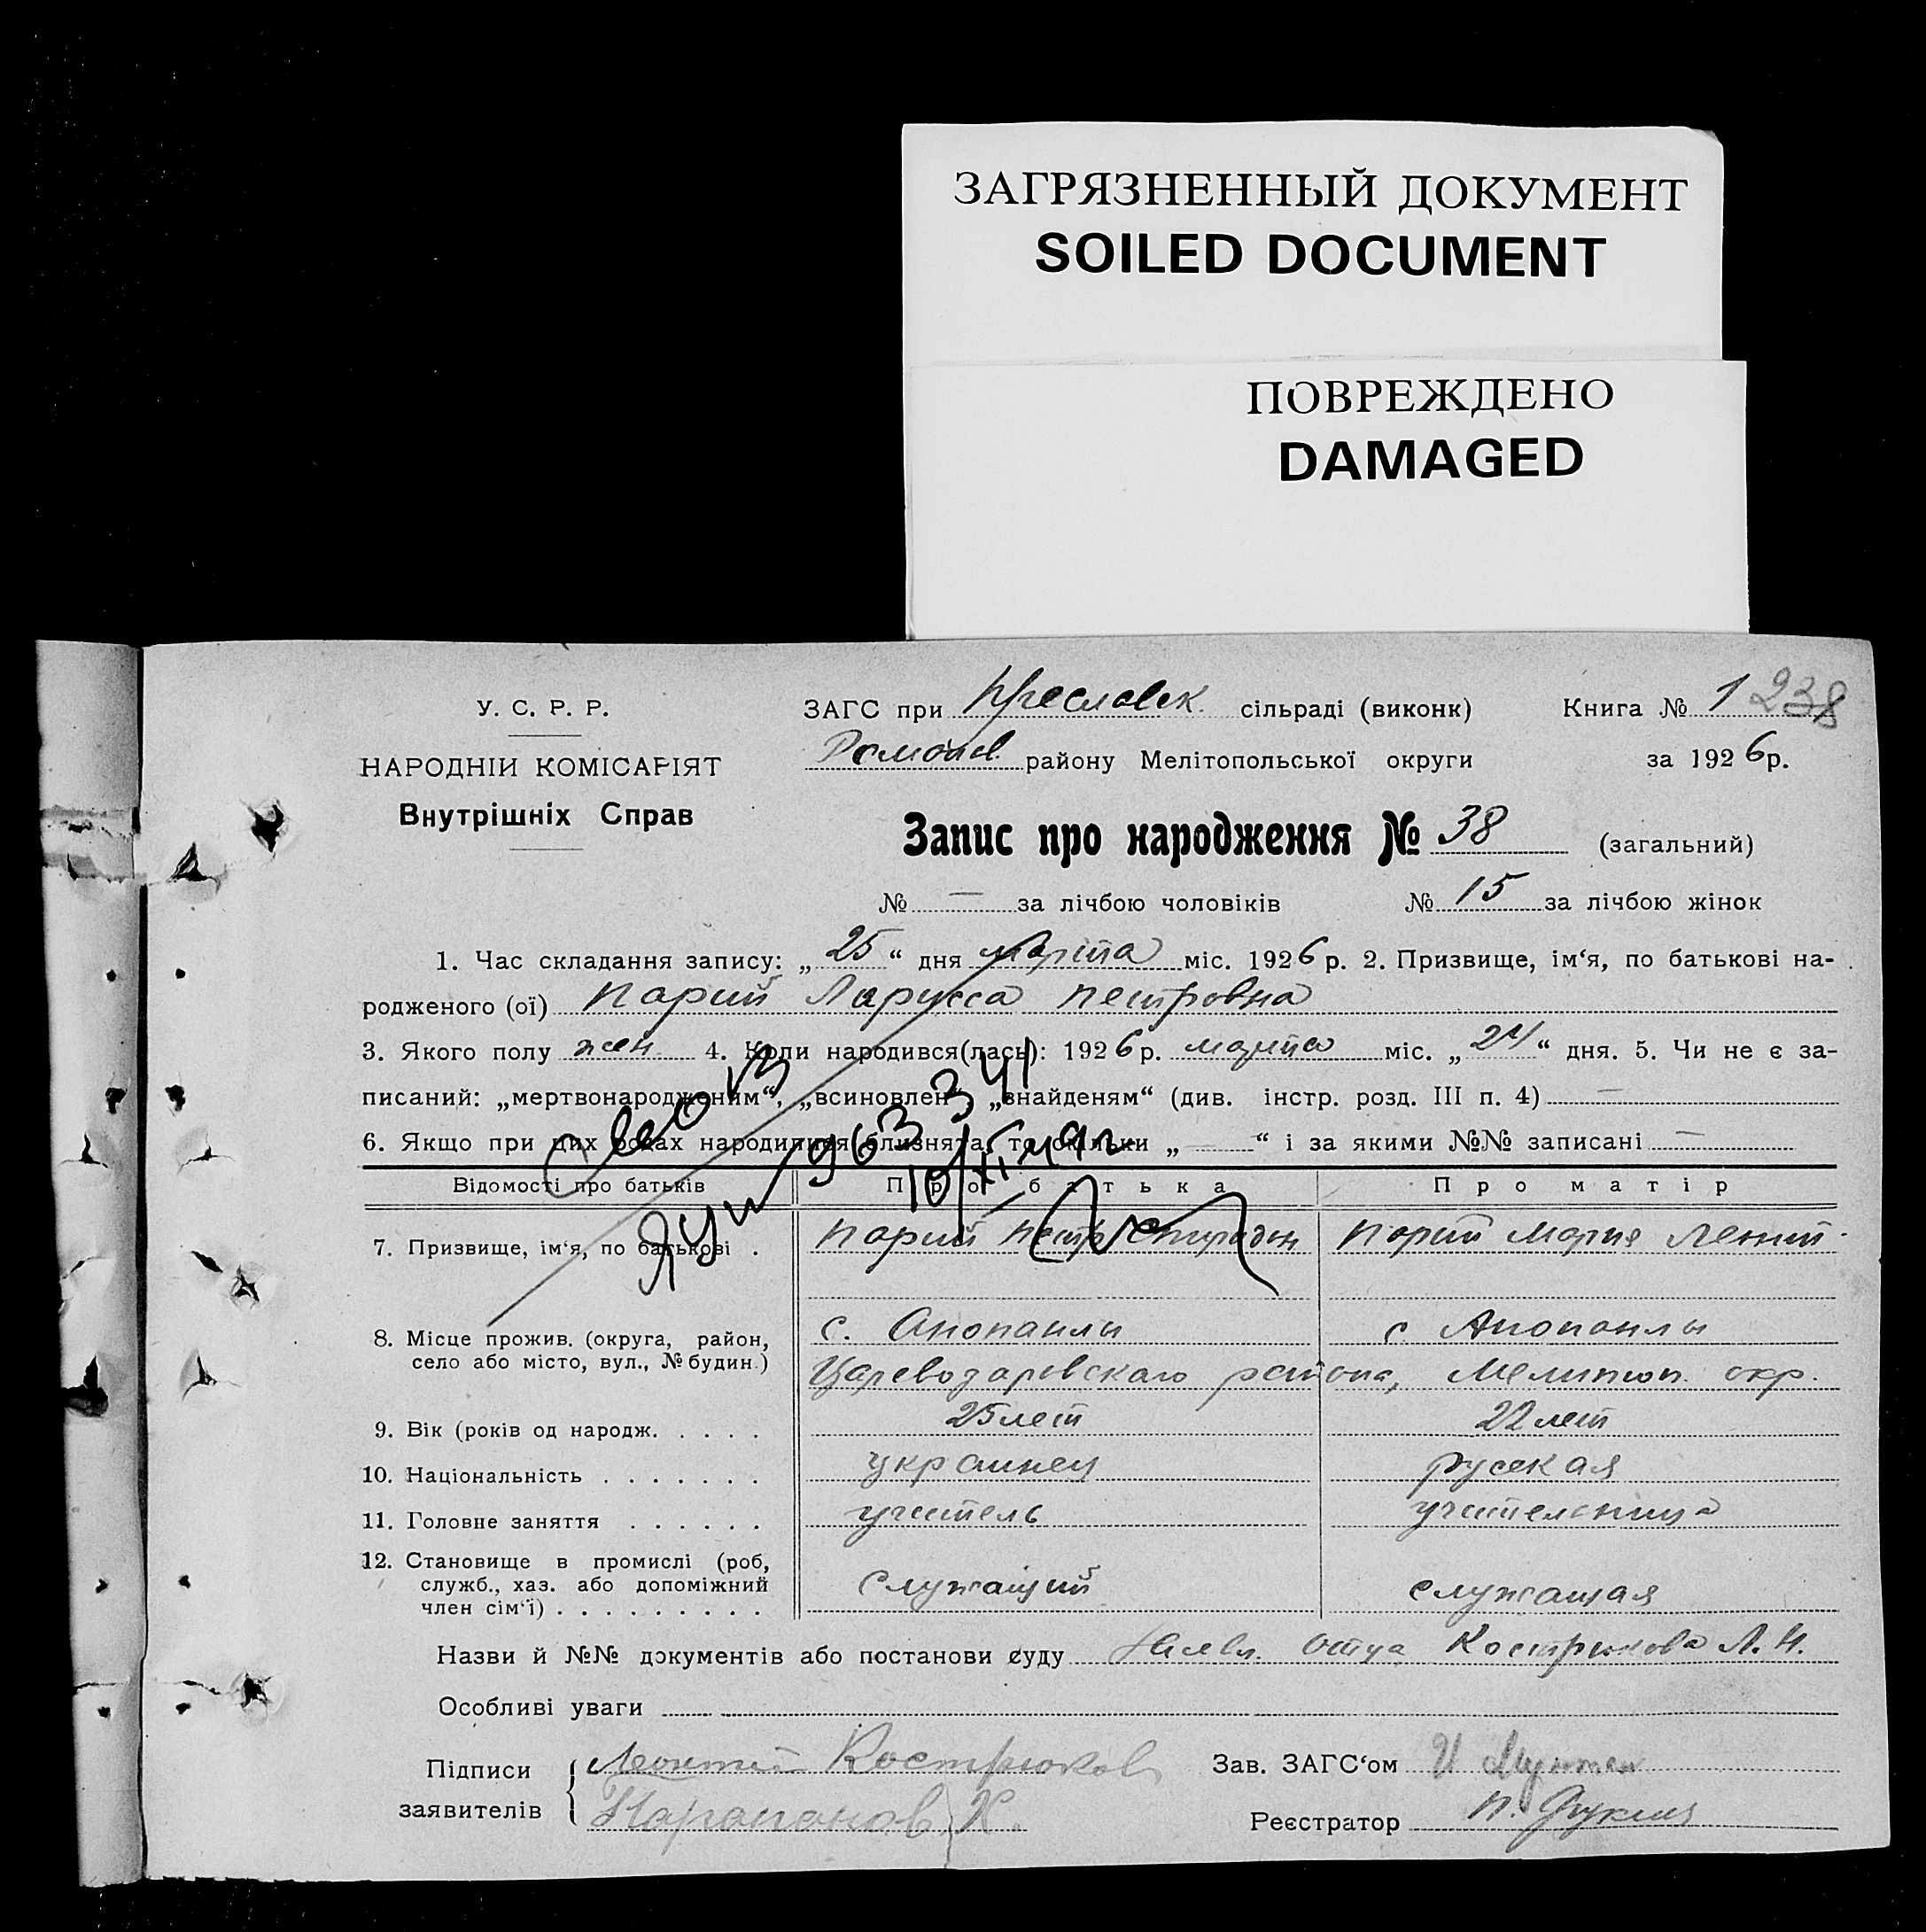 ЗАГРЯЗНЕННЫЙ ДОКУМЕНТ
SOILED DOCUMENT
ПОВРЕЖДЕНО
DAMAGED
У. С. Р. Р.
НАРОДНІЙ КОМІСАРІЯТ
Внутрішніх Справ
ЗАГС при Преславск. сільраді (виконк)
району Мелітопольської округи
Книга № 1 238
за 1926 р.
Запис про народження № 38 (загальний)
№ — за лічбою чоловіків № 15 за лічбою жінок
1. Час складання запису: „25“ дня марта міс. 1926 р. 2. Призвище, ім‘я, по батькові на-
родженого (ої) Парий Ларисса Петровна
3. Якого полу жен. 4. Коли народився(лась): 1926 р. марта міс. „24“ дня. 5. Чи не є за-
писаний: „мертвонародженим“, „всиновлен“, „знайденям“ (див. інстр. розд. III п. 4) —
6. Якщо при цих родах народилися близнята, то скільки „—“ і за якими №№ записані —
Відомості про батьків Про батька Про матір
7. Призвище, ім‘я, по батькові . Парий Петр Спиридон Парий Мария Леонт.
8. Місце прожив. (округа, район,
село або місто, вул., № будин.)
с. Анопанлы с Анопанлы
Цареводаровскаго района, Мелитоп. окр.
9. Вік (років од народж. . . . . 25 лет 22 лет
10. Національність . . . . . . . украинец русская
11. Головне заняття . . . . . . учитель учительница
12. Становище в промислі (роб,
служб., хаз. або допоміжний
член сім‘ї) . . . . . . . . . служащий служащая
Назви й №№ документів або постанови суду отца Кострюкова Л. И.
Особливі уваги
Підписи
заявителів
Леонтий Кострюков
Карапанов Х.
Зав. ЗАГС‘ом
Реєстратор